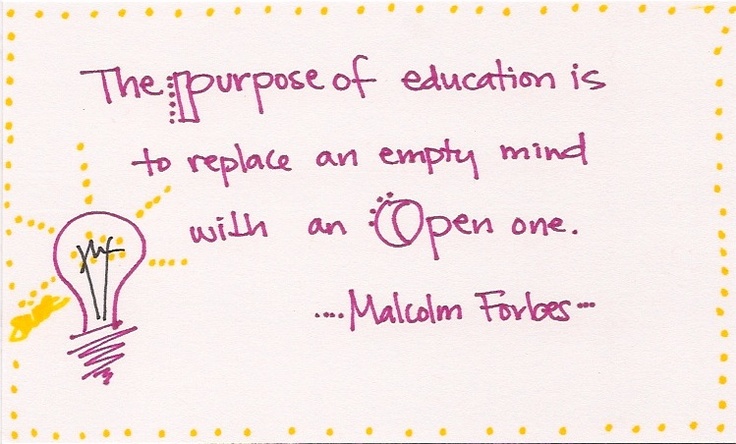 The purpose of education is
to replace an empty mind
with an Open one.
....Malcolm Forbes...